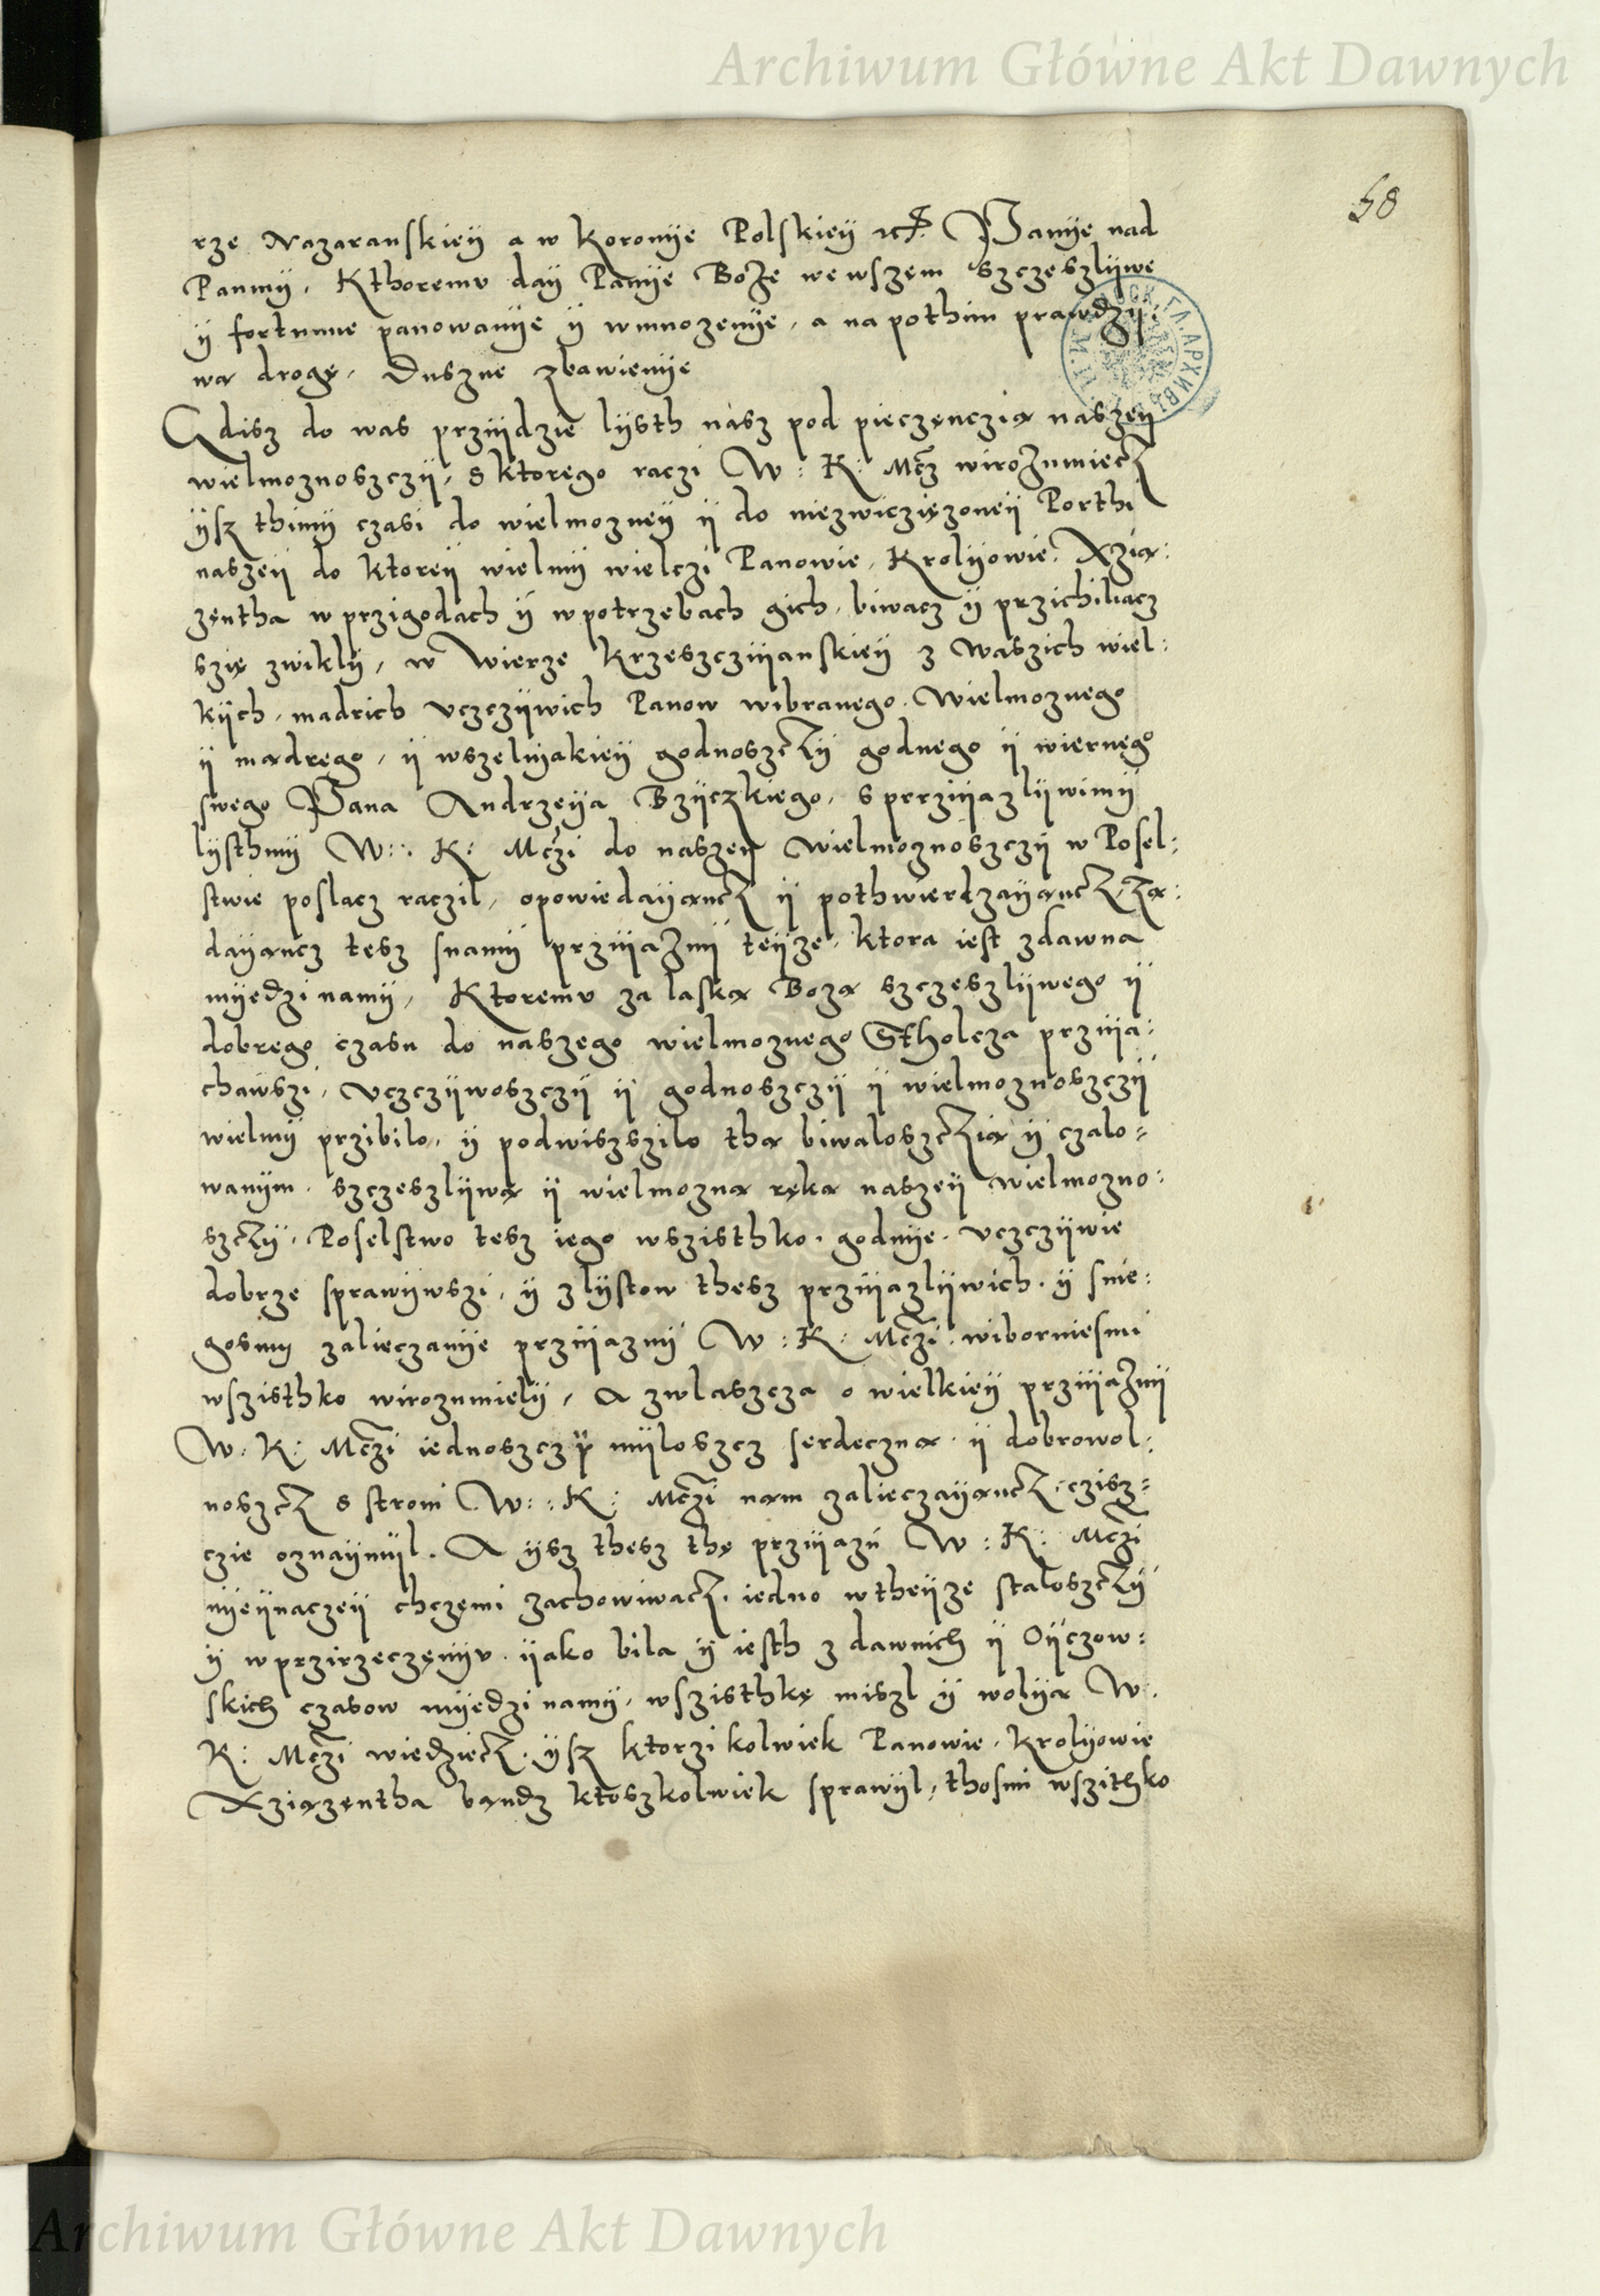 Archiwum Główne Akt Dawnych
58
rze Nazaranskieÿ a w Koronÿe Polskieÿ etc. Panÿe nad
Panmÿ, Kthoremv daÿ Panÿe Boże we wszẹm szczeszlÿwe
ÿ fortunne panowanÿe ÿ wmnozenÿe, a napothim prawdzÿ:
wą drogę, Duszne zbawienÿe
Gdisz do was przÿdzie lÿsth nasz pod pieczęnczią naszeÿ
wielmoznoszczÿ, s ktorego raczi W: K: Mcz wirozumiecz
ÿsz thimÿ czasi do wielmozneÿ ÿ do niezwiczięzoneÿ Porthi
naszeÿ do ktoreÿ wielmÿ wielczi Panowie, Krolÿowie, Xzią:
zęntha w przigodach ÿ w potrzebach gich, biwacz ÿ przichiliacz
szię zwiklÿ, w Wierze Krzeszczÿanskieÿ z Waszich wiel:
kÿch, mądrich vczczÿwich Panow wibranego, Wielmoznego
ÿ mądrẹgo, ÿ wszelÿakieÿ godnoszczÿ godnego ÿ wiernẹgo
swego Pana Andrzeÿa Bzÿczkiego, s przÿiazlÿwimÿ
lÿsthmÿ W: K: Mczi do naszeÿ Wielmoznoszczÿ w Posel:
stwie poslacz raczil, opowiedaÿąncz ÿ pothwierdzaÿąncz, żą:
daÿąncz tesz snamÿ przÿiaznÿ teÿze, ktora iest zdawna
mÿedzi namÿ, Ktoremv za laską Bożą szczeszlÿwego ÿ
dobrego czasu do naszego wielmoznego Stholcza przÿia:
chawszi, vczczÿwoszczÿ ÿ godnoszczÿ ÿ wielmoznoszczÿ
wielmÿ przibilo, ÿ podwiszszilo thą biwaloszczią ÿ czalo=
wanÿm, szczeszlÿwą ÿ wielmozną ręką naszeÿ Wielmozno:
szczÿ, Poselstwo tesz iego wszisthko, godnÿe, vczczÿwie
dobrze sprawÿwszi, ÿ z lÿstow thesz przÿiazlÿwich, ÿ snie:
gosmÿ zalieczanÿe przÿiaznÿ W: K: Mczi, wiborniesmi
wszisthko wirozumielÿ, A zwlaszcza o wielkieÿ przÿiaznÿ
W: K: Mczi iednoszcz ÿ mÿloszcz serdeczną, ÿ dobrowol:
noszcz s stroni W: K: Mczi nam zalieczaÿąncz, czisz=
czie oznaÿmÿl. A ÿsz thesz thę przÿiazń W: K: Mczi
nÿeÿnaczeÿ chczẹmi zachowiwacz, iedno w theÿze staloszczÿ
ÿ w przirzeczẹnÿv, ÿako bila ÿ iesth z dawnich ÿ Oÿczow:
skich czasow mÿedzi namÿ, wszisthkę miszl ÿ wolÿą W:
K: Mczi wiedziecz, ÿsz ktorzikolwiek Panowie, Krolÿowie
Xziązęntha bąndz ktoszkolwiek sprawÿl, thosmi wszithko
Archiwum Główne Akt Dawnych